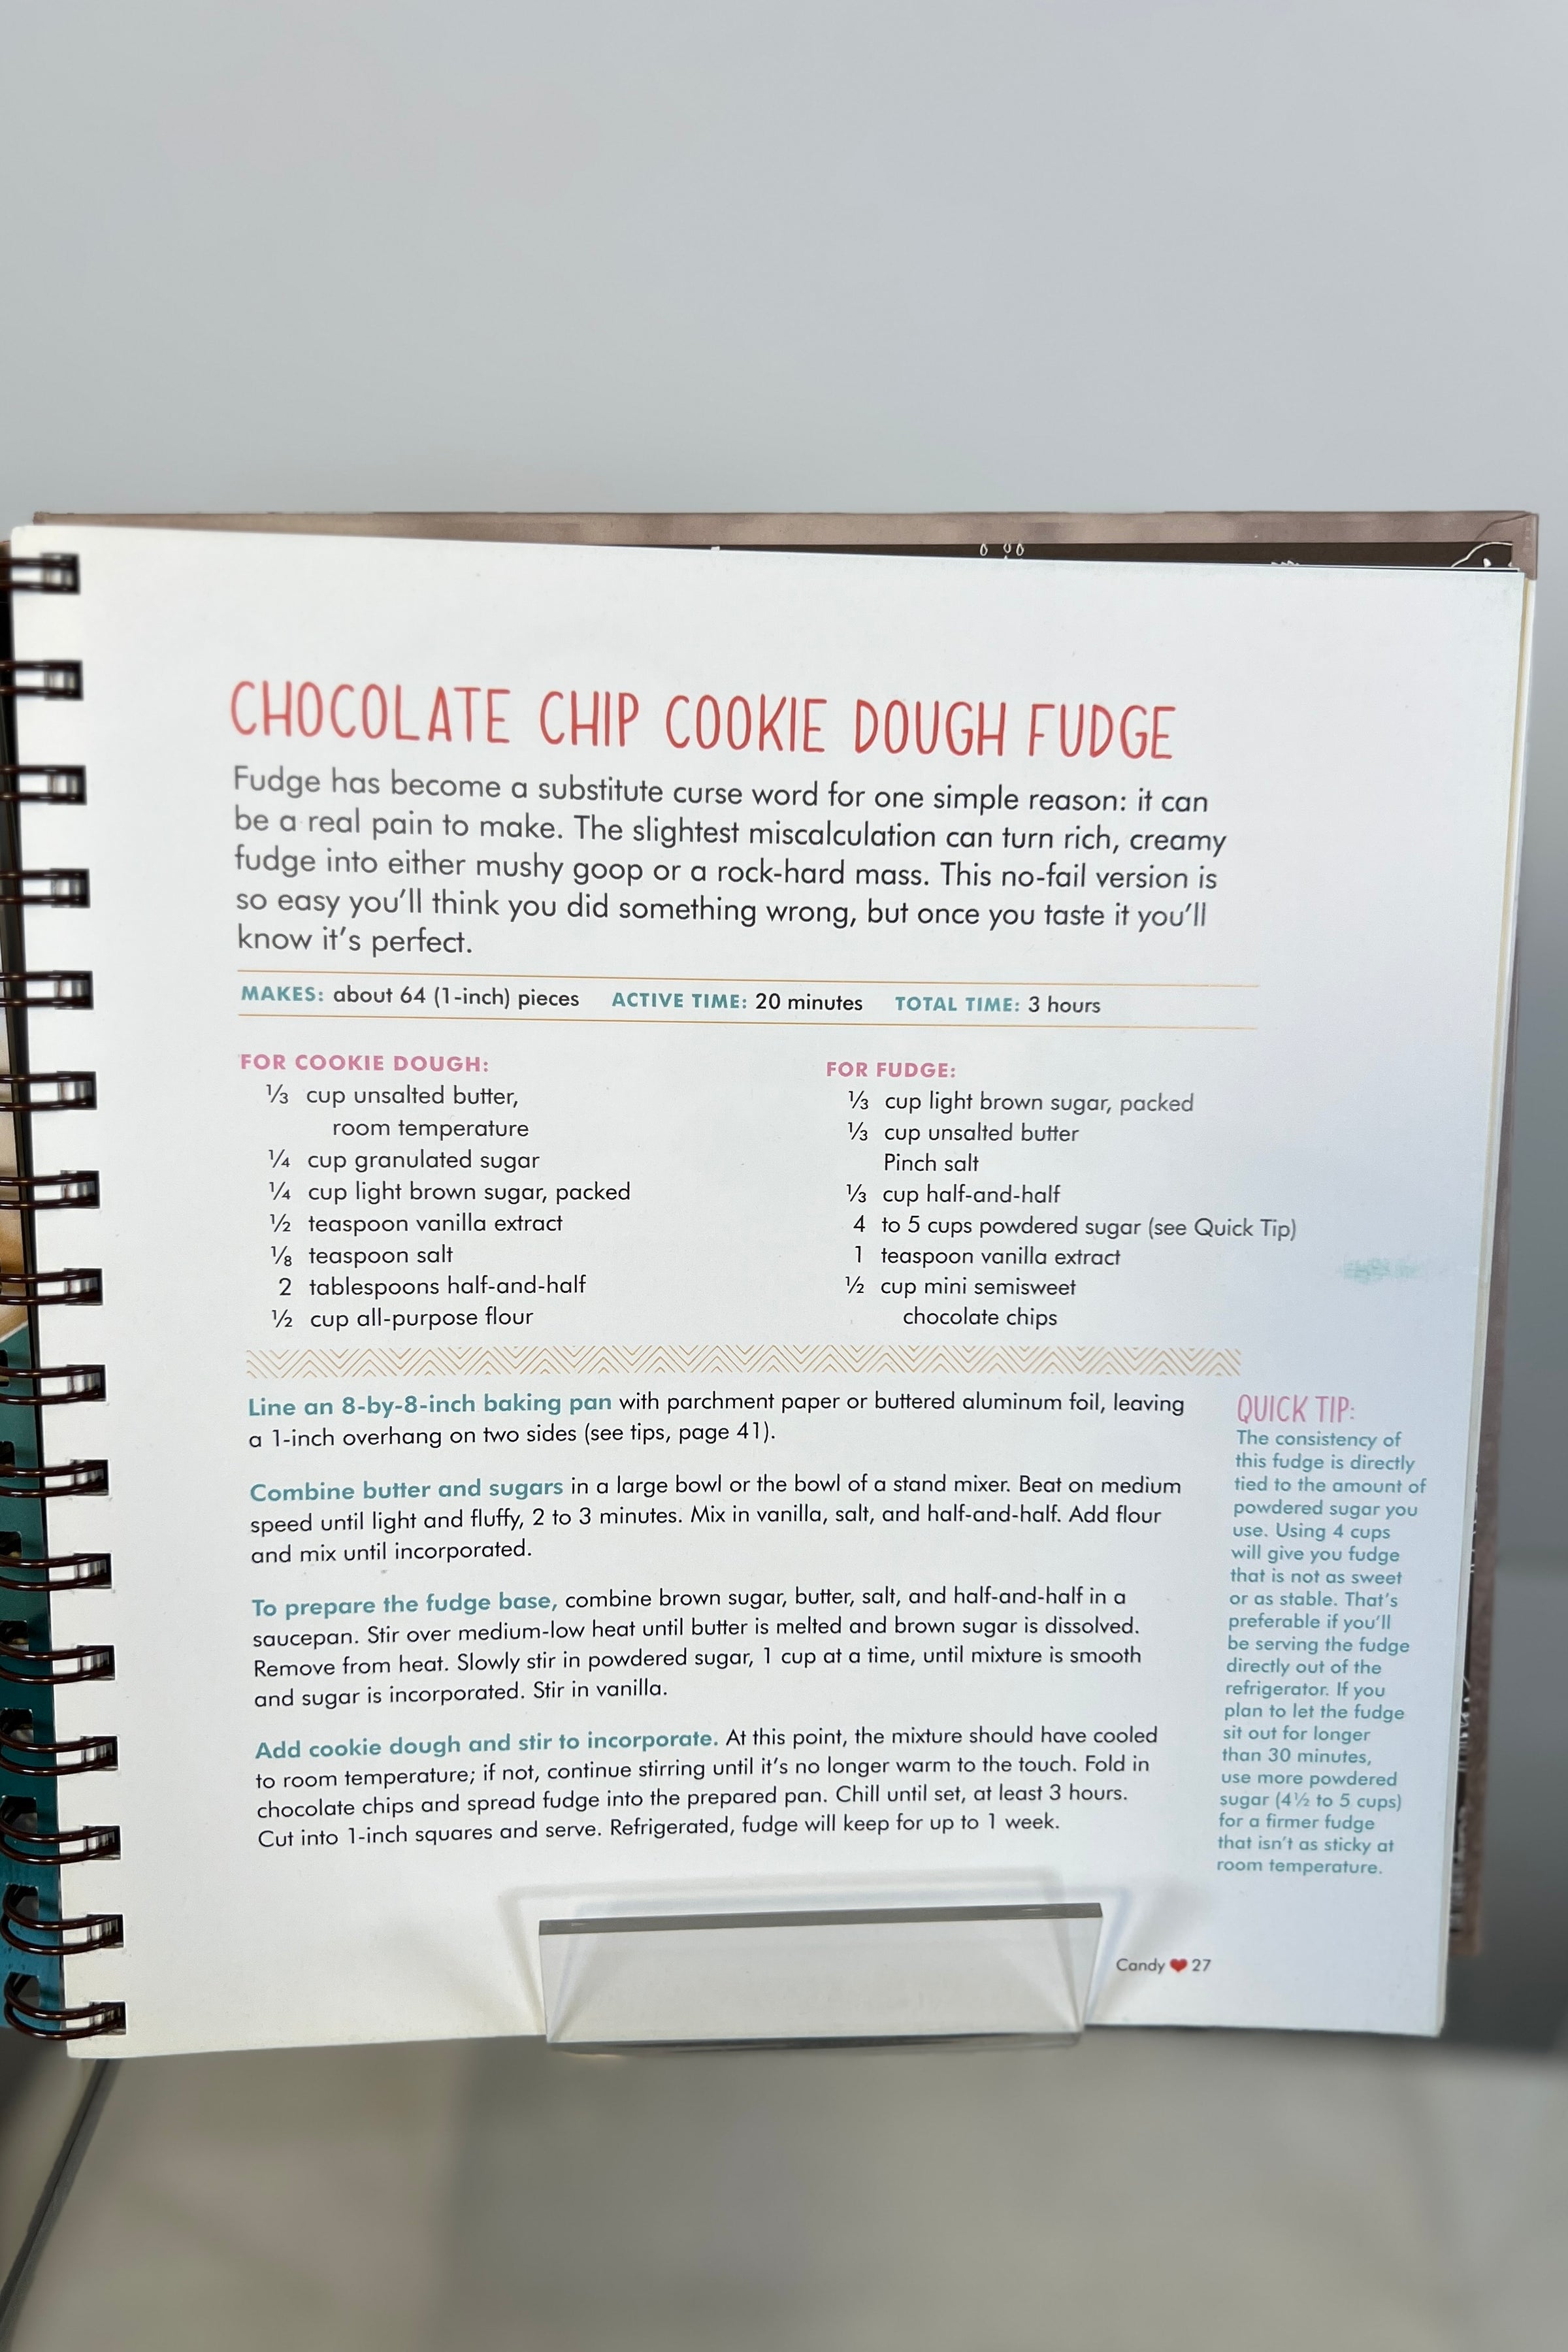 CHOCOLATE CHIP COOKIE DOUGH FUDGE
Fudge has become a substitute curse word for one simple reason: it can
be a real pain to make. The slightest miscalculation can turn rich, creamy
fudge into either mushy goop or a rock-hard mass. This no-fail version is
so easy you'll think you did something wrong, but once you taste it you'll
know it's perfect.
MAKES: about 64 (1-inch) pieces ACTIVE TIME: 20 minutes TOTAL TIME: 3 hours
FOR COOKIE DOUGH:
⅓ cup unsalted butter,
room temperature
¼ cup granulated sugar
¼ cup light brown sugar, packed
½ teaspoon vanilla extract
⅛ teaspoon salt
2 tablespoons half-and-half
½ cup all-purpose flour
FOR FUDGE:
⅓ cup light brown sugar, packed
⅓ cup unsalted butter
Pinch salt
⅓ cup half-and-half
4 to 5 cups powdered sugar (see Quick Tip)
1 teaspoon vanilla extract
½ cup mini semisweet
chocolate chips
Line an 8-by-8-inch baking pan with parchment paper or buttered aluminum foil, leaving
a 1-inch overhang on two sides (see tips, page 41).
Combine butter and sugars in a large bowl or the bowl of a stand mixer. Beat on medium
speed until light and fluffy, 2 to 3 minutes. Mix in vanilla, salt, and half-and-half. Add flour
and mix until incorporated.
To prepare the fudge base, combine brown sugar, butter, salt, and half-and-half in a
saucepan. Stir over medium-low heat until butter is melted and brown sugar is dissolved.
Remove from heat. Slowly stir in powdered sugar, 1 cup at a time, until mixture is smooth
and sugar is incorporated. Stir in vanilla.
Add cookie dough and stir to incorporate. At this point, the mixture should have cooled
to room temperature; if not, continue stirring until it's no longer warm to the touch. Fold in
chocolate chips and spread fudge into the prepared pan. Chill until set, at least 3 hours.
Cut into 1-inch squares and serve. Refrigerated, fudge will keep for up to 1 week.
QUICK TIP:
The consistency of
this fudge is directly
tied to the amount of
powdered sugar you
use. Using 4 cups
will give you fudge
that is not as sweet
or as stable. That's
preferable if you'll
be serving the fudge
directly out of the
refrigerator. If you
plan to let the fudge
sit out for longer
than 30 minutes,
use more powdered
sugar (4½ to 5 cups)
for a firmer fudge
that isn't as sticky at
room temperature.
Candy ❤ 27